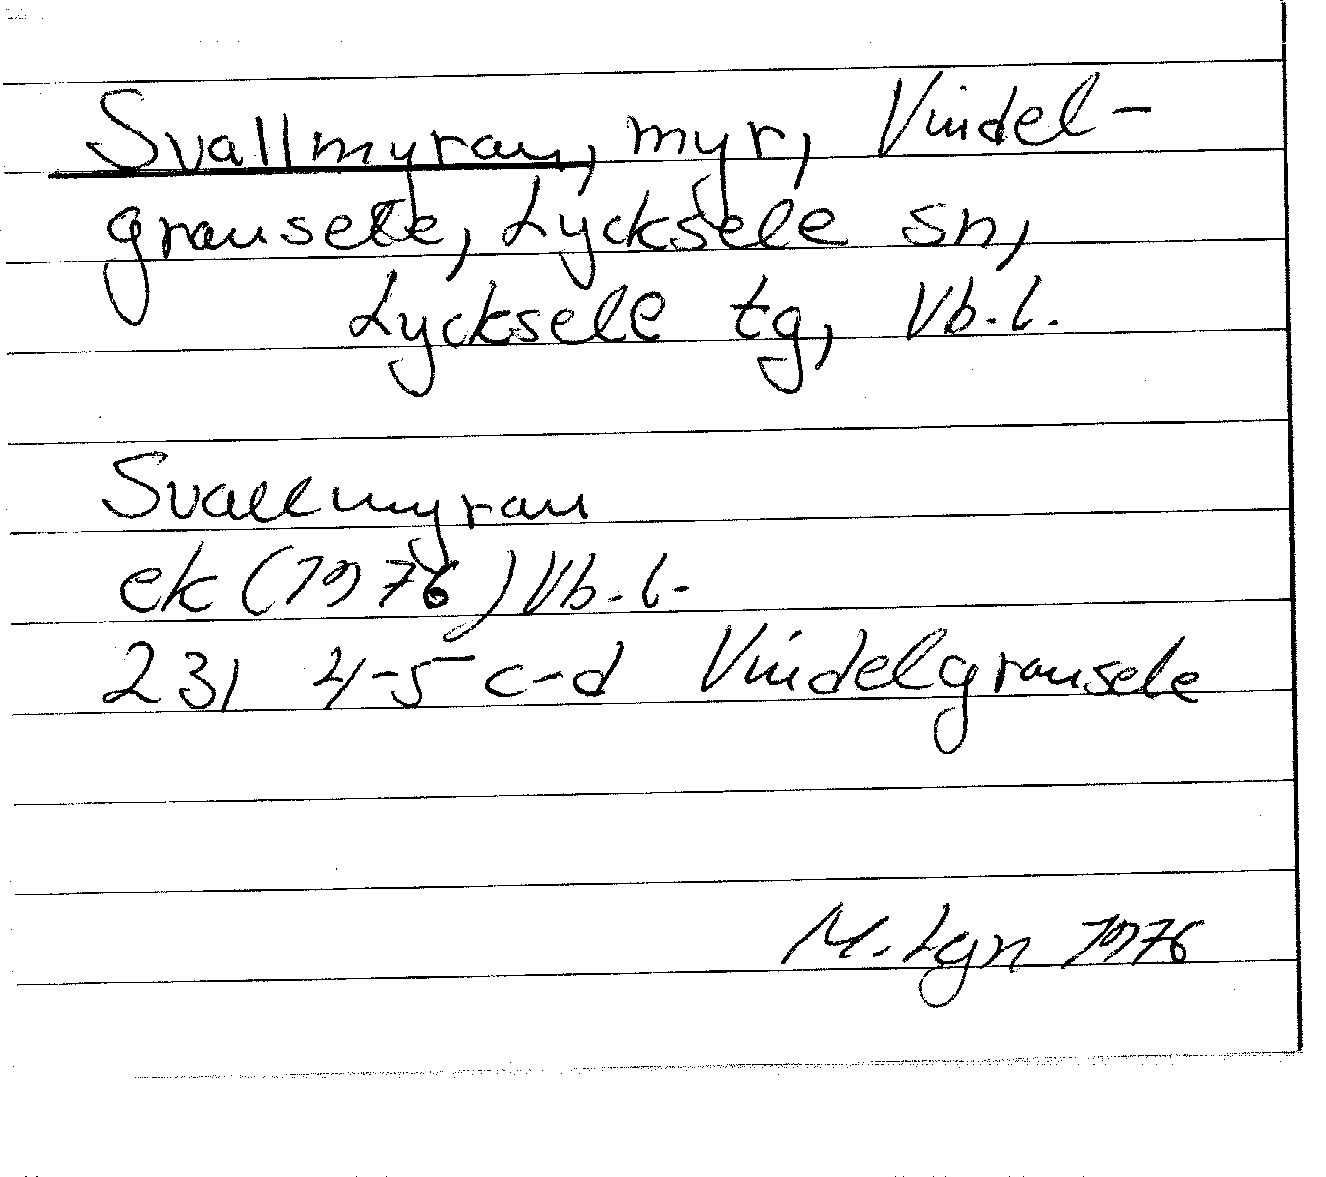 Svallmyran, myr, Vindel-
gransele, Lycksele sn,
Lycksele tg, Vb.l.
Svallmyran
ek (1976) Vb.l.
231 4-5 c-d Vindelgransele
M. Lgn 1976